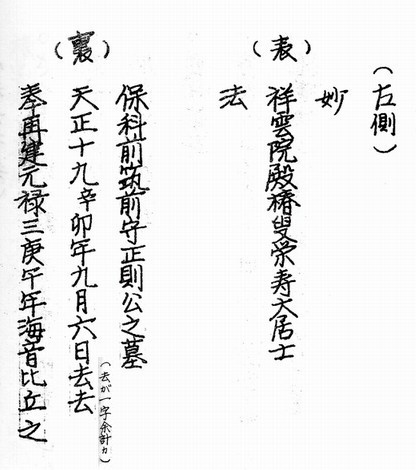 (左側)
(表)
妙
祥雲院殿椿叟栄寿大居士
法
(裏)
保科前筑前守正則公之墓
天正十九辛卯年九月六日去去
(去が一字余計カ)
奉再建元禄三庚午年海音比丘之